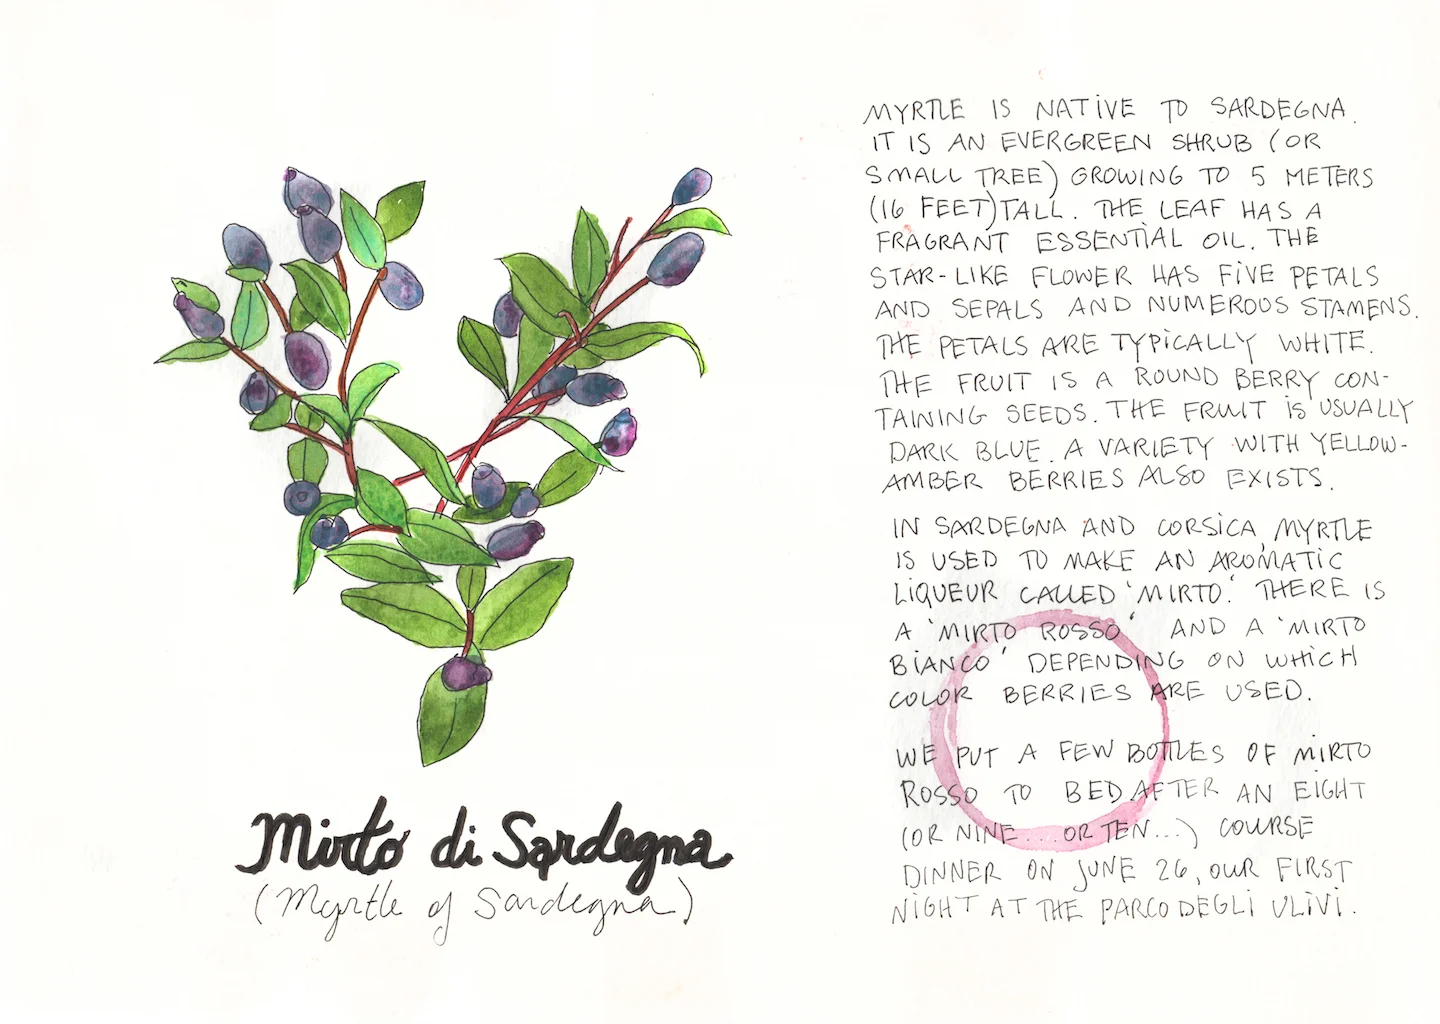 Mirto di Sardegna
(Myrtle of Sardegna)
MYRTLE IS NATIVE TO SARDEGNA.
IT IS AN EVERGREEN SHRUB (OR
SMALL TREE) GROWING TO 5 METERS
(16 FEET) TALL. THE LEAF HAS A
FRAGRANT ESSENTIAL OIL. THE
STAR-LIKE FLOWER HAS FIVE PETALS
AND SEPALS AND NUMEROUS STAMENS.
THE PETALS ARE TYPICALLY WHITE.
THE FRUIT IS A ROUND BERRY CON-
TAINING SEEDS. THE FRUIT IS USUALLY
DARK BLUE. A VARIETY WITH YELLOW-
AMBER BERRIES ALSO EXISTS.
IN SARDEGNA AND CORSICA, MYRTLE
IS USED TO MAKE AN AROMATIC
LIQUEUR CALLED 'MIRTO.' THERE IS
A 'MIRTO ROSSO' AND A 'MIRTO
BIANCO' DEPENDING ON WHICH
COLOR BERRIES ARE USED.
WE PUT A FEW BOTTLES OF MIRTO
ROSSO TO BED AFTER AN EIGHT
(OR NINE....OR TEN...) COURSE
DINNER ON JUNE 26, OUR FIRST
NIGHT AT THE PARCO DEGLI ULIVI.